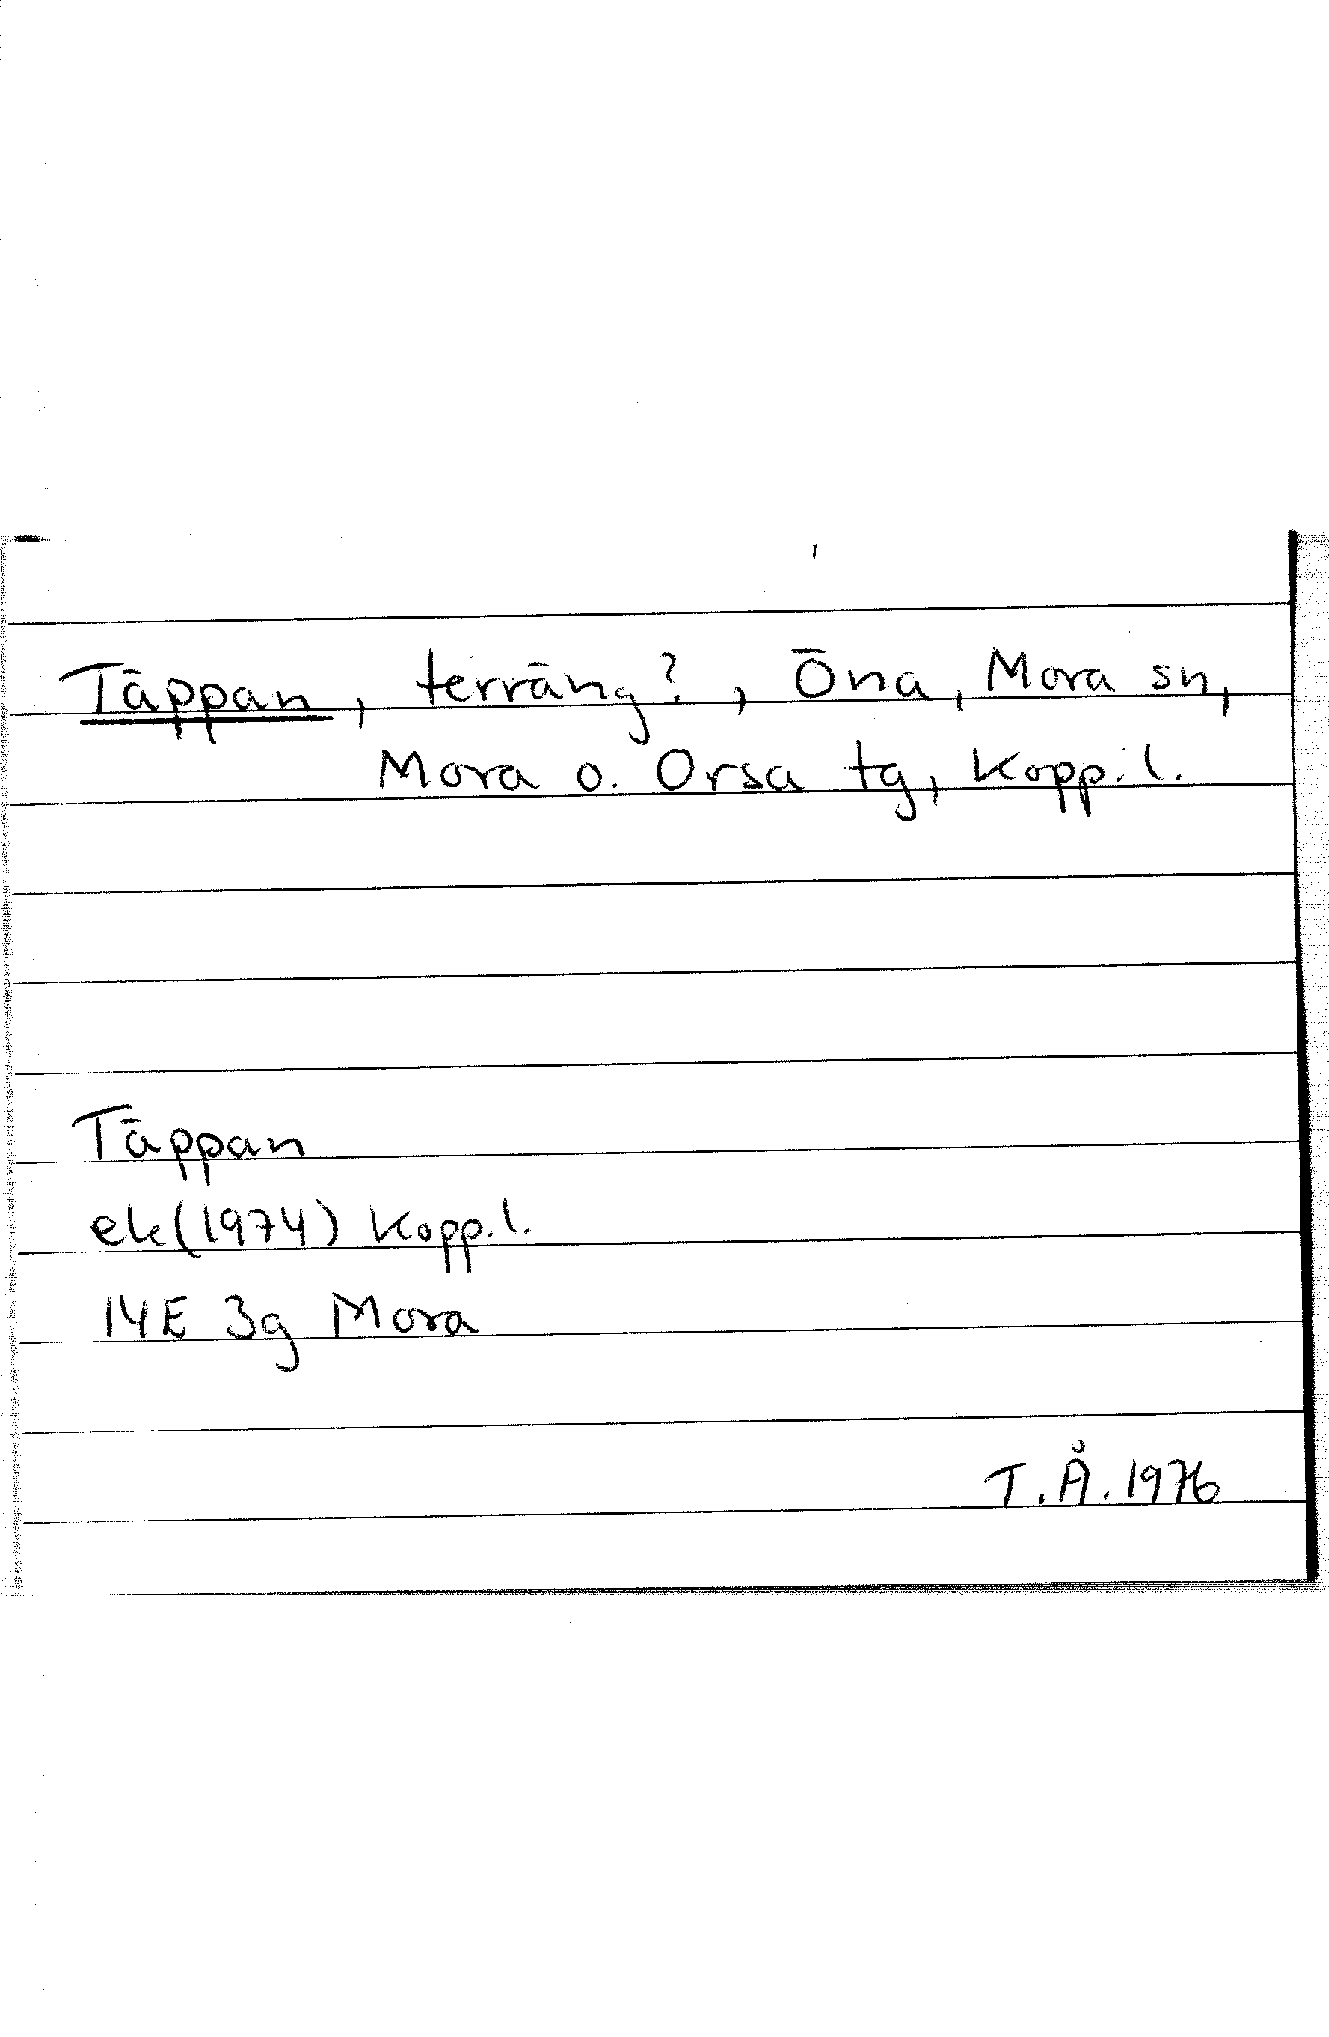 Täppan, terräng?, Öna, Mora sn,
Mora o. Orsa tg, Kopp. l.
Täppan
ek(1974) Kopp. l.
14E 3g Mora
T.Å. 1976